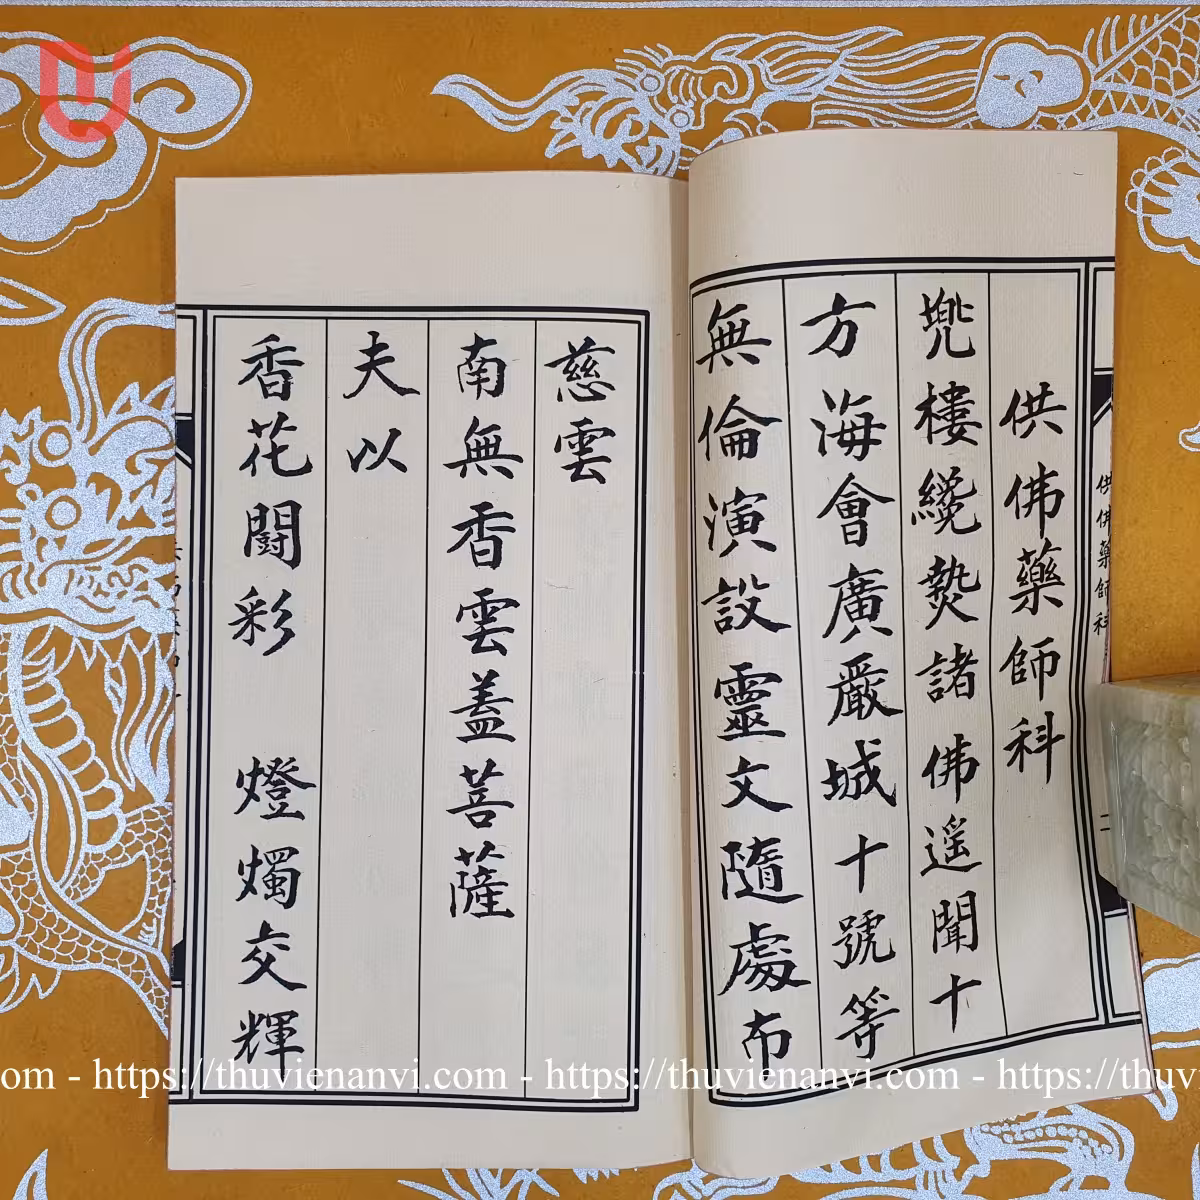 供佛藥師科
二
供佛藥師科
兠樓纔爇諸佛遥聞十
方海會廣嚴城十號等
無倫演設靈文隨處布
慈雲
南無香雲蓋菩薩
夫以
香花鬪彩 燈燭交輝
om - https://thuvienanvi.com - https://thuvienanvi.com - https://thuv